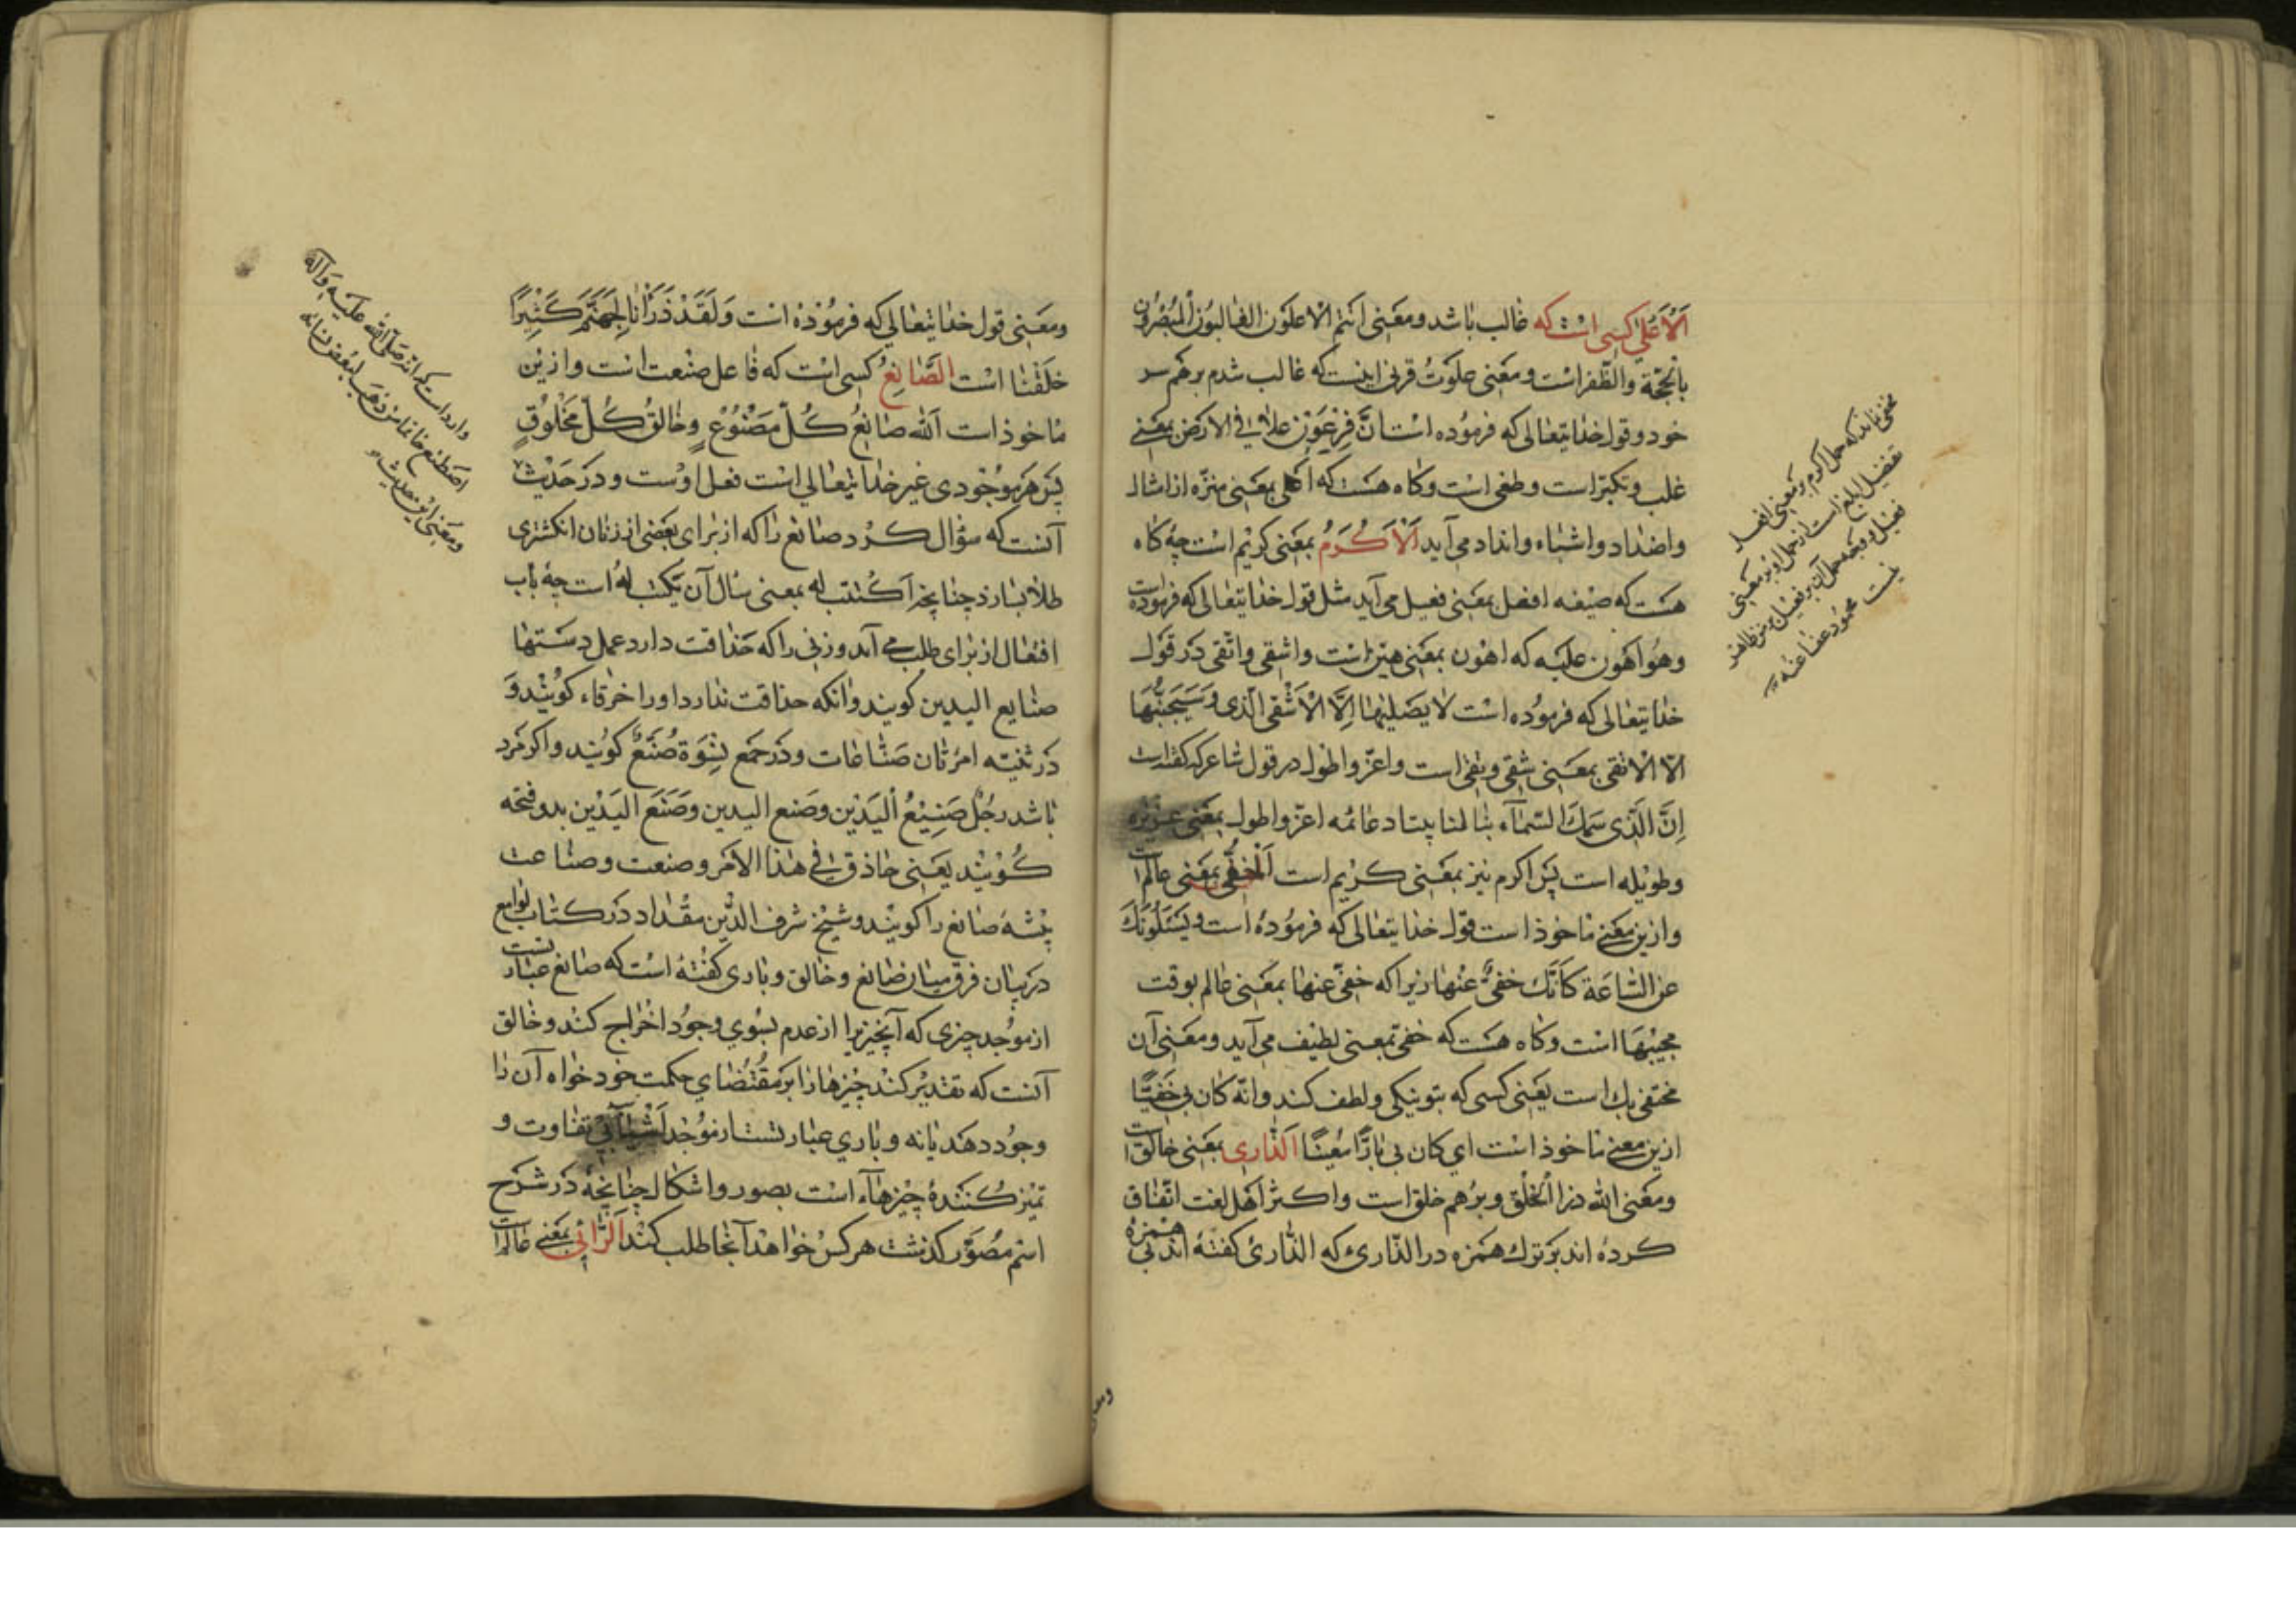 اَلْاَعْلیٰ کسی است که غالب باشد ومعنی انتم الاعلون الغالبون المنصرون
بالحجّة والظّفر است ومعنی علوت قرنی اینست که غالب شدم بر خصم
خود وقول خدایتعالی که فرموده است انّ فِرعَوْن علا فی الارض بمعنی
غلب وتکبّر است وطغی است وکاه هست که اعلی بمعنی منزّه از امثال
واضداد واشباه وانداد می آید اَلْاَکْرَمُ بمعنی کریم است چه کاه
هست که صیغه افعل بمعنی فعیل می آید مثل قول خدایتعالی که فرموده است
وهُو اَهَون علیه که اهون بمعنی هیّن است واشقی واتقی در قول
خدایتعالی که فرموده است لا یصلیها اِلَّا الْاَشْقی الّذی وَسَیُجَنَّبُهَا
الا الاتقی بمعنی شقی وتقی است واعزّ واطول در قول شاعر که گفته است
اِنَّ الَّذی سَمَكَ السّمآء بنا لنا بیتا دعائمه اعزّ واطول بمعنی عزیزه
وطویله است پس اکرم نیز بمعنی کریم است اَلْخَفیُّ بمعنی عالم است
وازین معنی ماخوذ است قول خدایتعالی که فرموده است ویَسئَلُونَكَ
عن السّاعَة کَاَنّك خفیٌّ عنها زیرا که خفیّ عنها بمعنی عالم بوقت
مجیئها است وکاه هست که خفی بمعنی لطیف می آید ومعنی آن
مختفی بك است یعنی کسی که بتو نیکی ولطف کند وانّه کان بی خَفیًّا
ازین معنی ماخوذ است ای کان بی بارًّا معینًا اَلذّاری بمعنی خالق است
ومعنی اللّه ذرا الخلق وبرءهم خلق است واکثر اهل لغت اتّفاق
کرده اند بر ترك همزه در الذّاریء که الذّاری گفته اند بی همزه
مخفی نماند که حمل اکرم بر معنی افعل
تفضیل ابلغ است از حمل او بر معنی
فعیل و وجه حمل آن بر فعیل ظاهر
نیست محمود عفا عنه
ومعنی قول خدایتعالی که فرموده است وَلَقَدْ ذَرَاْنَا لِجَهَنَّمَ کَثِیْرًا
خلقنا است الصَّانِعُ کسی است که فاعل صنعت است وازین
ماخوذ است اللّه صانِعُ کُلّ مَصْنُوْعٍ وخالقُ کُلّ مَخْلُوْقٍ
پس هر موجودی غیر خدایتعالی است فعل اوست ودر حَدیْث
آنست که سؤال کرد صانع را که از برای بعضی از زنان انکشتری
طلا بسازد چنانچه اَکْتتب له بمعنی سأل آن یکتب لهُ است چه باب
افتعال از برای طلب می آید وزنی را که حذاقت دارد عمل دستها
صنایع الیدین کویند وآنکه حذاقت ندارد اورا خرقاء کویند وَ
در تثنیه امرئتان صَنّاعات ودر جمع نِسْوَة صُنَعٌ کویند واکر مرد
باشد رجُل صَنِیْعُ الْیَدَیْن وصنع الیدین وصَنَعَ الیَدَیْن بدو فتحه
کویند یعنی حاذق فی هذا الامر وصنعت وصناعت
پیشهٔ صانع را کویند وشیخ شرف الدّین مقداد در کتاب لوامع
در بیان فرق میان صانع وخالق وباری گفته است که صانع عبارتست
از موجد چیزی که آنچیز را از عدم بسوی وجود اخراج کند وخالق
آنست که تقدیر کند چیزها را بر مقتضای حکمت خود خواه آن را
وجود دهد یا نه وباری عبارتست از موجد اشیا بی تفاوت و
تمیز کنندهٔ چیزهآء است بصور واشکال چنانچه در شرح
اسم مصوّر کذشت هر کس خواهد آنجا طلب کند اَلرَّائی بمعنی عالم است
وارد است که انّه صلّی اللّه علیه وآله
اصطنع خاتما من ذهب لبعض نسائه
ومعنی این حدیث
ومعنی